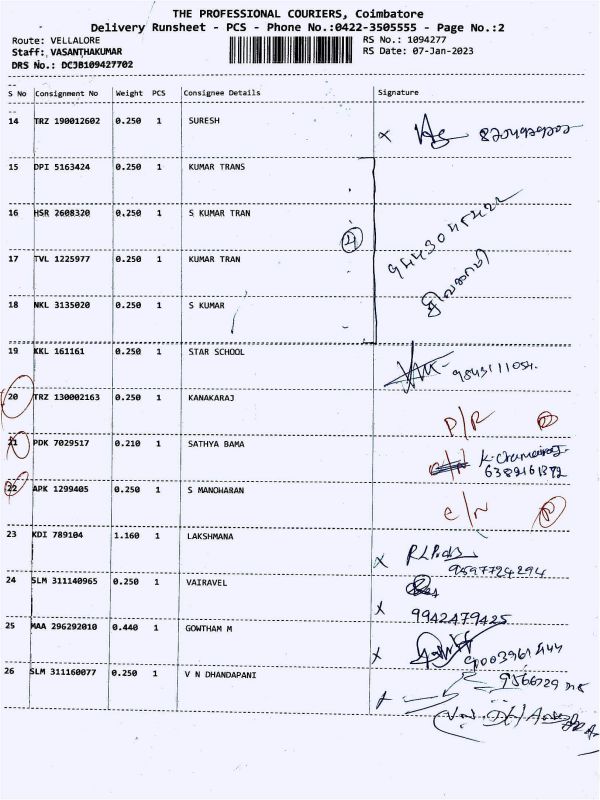 THE PROFESSIONAL COURIERS, Coimbatore
Delivery Runsheet - PCS - Phone No.:0422-3505555 - Page No.:2
Route: VELLALORE
RS No.: 1094277
Staff: VASANTHAKUMAR
RS Date: 07-Jan-2023
DRS No.: DCJB109427702
S No Consignment No Weight PCS Consignee Details Signature
14 TRZ 190012602 0.250 1 SURESH
15 DPI 5163424 0.250 1 KUMAR TRANS
16 HSR 2608320 0.250 1 S KUMAR TRAN
4
17 TVL 1225977 0.250 1 KUMAR TRAN
18 NKL 3135020 0.250 1 S KUMAR
19 KKL 161161 0.250 1 STAR SCHOOL
20 TRZ 130002163 0.250 1 KANAKARAJ
P/R
21 PDK 7029517 0.210 1 SATHYA BAMA
22 APK 1299405 0.250 1 S MANOHARAN
C/N
23 KDI 789104 1.160 1 LAKSHMANA
9597724294
24 SLM 311140965 0.250 1 VAIRAVEL
9942479425
25 MAA 296292010 0.440 1 GOWTHAM M
26 SLM 311160077 0.250 1 V N DHANDAPANI